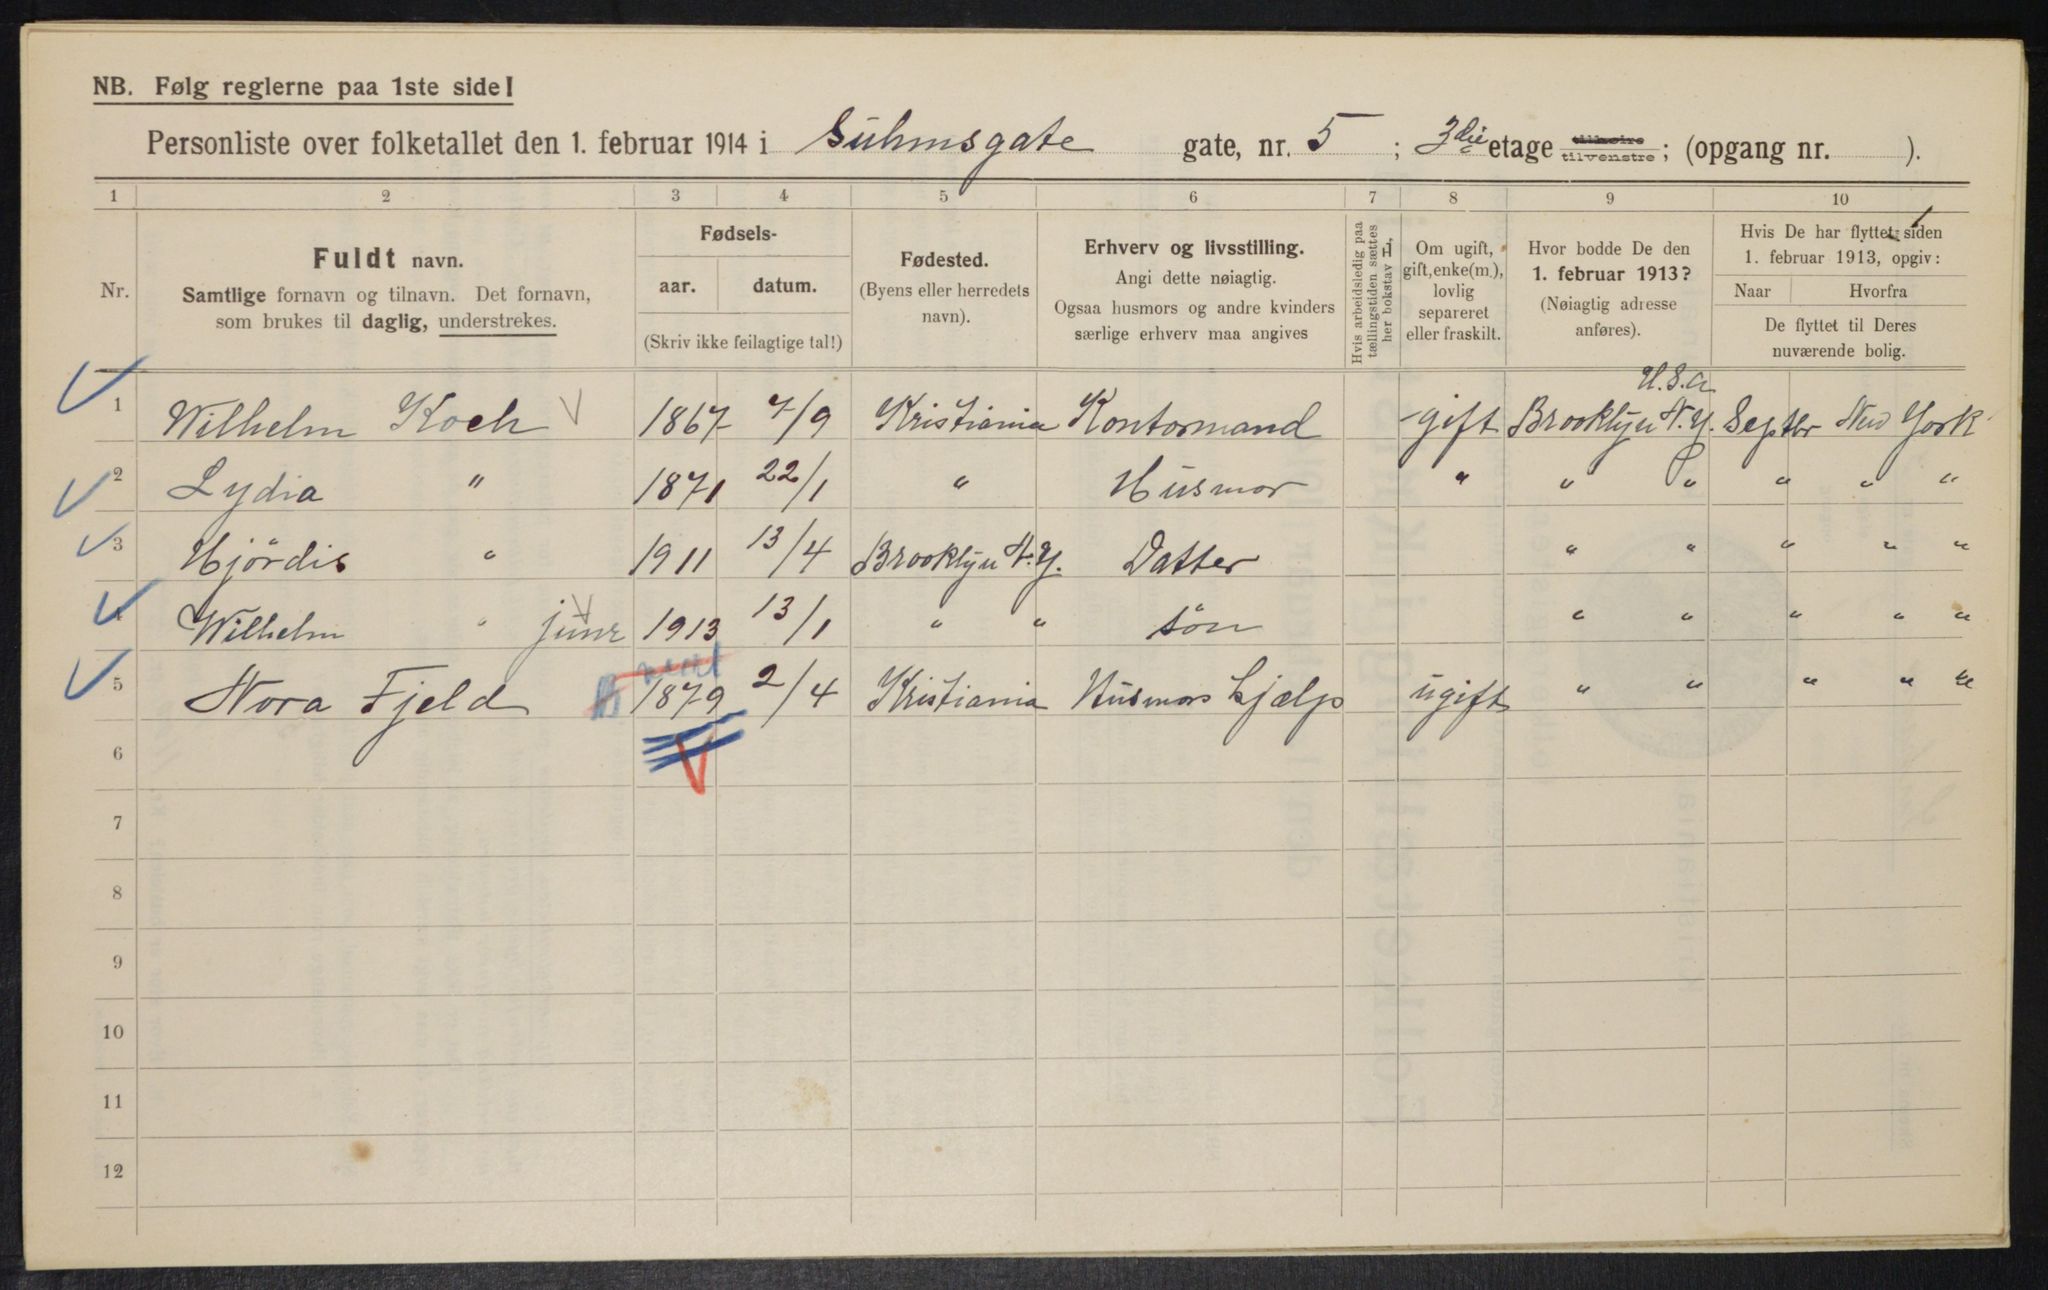 NB. Følg reglerne paa 1ste side!
Personliste over folketallet den 1. februar 1914 i Suhmsgate gate, nr. 5 ; 3die etage tilhøire tilvenstre; (opgang nr. ).
1 2 3 4 5 6 7 8 9 10
Nr.
Fuldt navn.
Samtlige fornavn og tilnavn. Det fornavn,
som brukes til daglig, understrekes.
Fødsels-
aar. datum.
(Skriv ikke feilagtige tal!)
Fødested.
(Byens eller herredets
navn).
Erhverv og livsstilling.
Angi dette nøiagtig.
Ogsaa husmors og andre kvinders
særlige erhverv maa angives
Hvis arbeidsledig paa
tællingstiden sættes
her bokstav L,
Om ugift,
gift, enke(m.),
lovlig
separeret
eller fraskilt.
Hvor bodde De den
1. februar 1913?
(Nøiagtig adresse
anføres).
Hvis De har flyttet siden
1. februar 1913, opgiv:
Naar Hvorfra
De flyttet til Deres
nuværende bolig.
U.S.A
1 Wilhelm Koch 1867 7/9 Kristiania Kontormand gift Brooklyn N.Y. Septbr New York
2 Lydia " 1871 22/1 " Husmor " " " " " "
3 Hjördis " 1911 13/4 Brooklyn N.Y. Datter " " " " "
4 Wilhelm " junr 1913 13/1 " " sön " " " " "
5 Nora Fjeld 1879 2/4 Kristiania Husmors hjælp ugift " " " " "
6
7
8
9
10
11
12